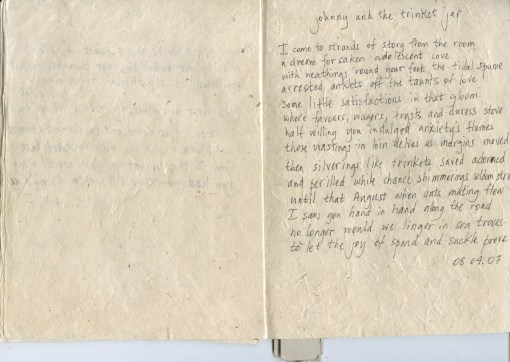 johnny and the trinket jar
I come to strands of story from the room
a dream forsaken adolescent cove
with neathings 'round your feet the tidal spume
arrested anklets off the taunts of love
some little satisfactions in that gloom
where favours, wagers, trysts and duress stove
half willing you indulged anxiety's flumes
those wastings in loin delves as margins moved
then silverings like trinkets saved adorned
and serilled while chance shimmerings seldom
until that August when ants mating flew
I saw you hand in hand along the road
no longer would we linger in sea troves
to let the joy of spend and suckle prove
08.09.07